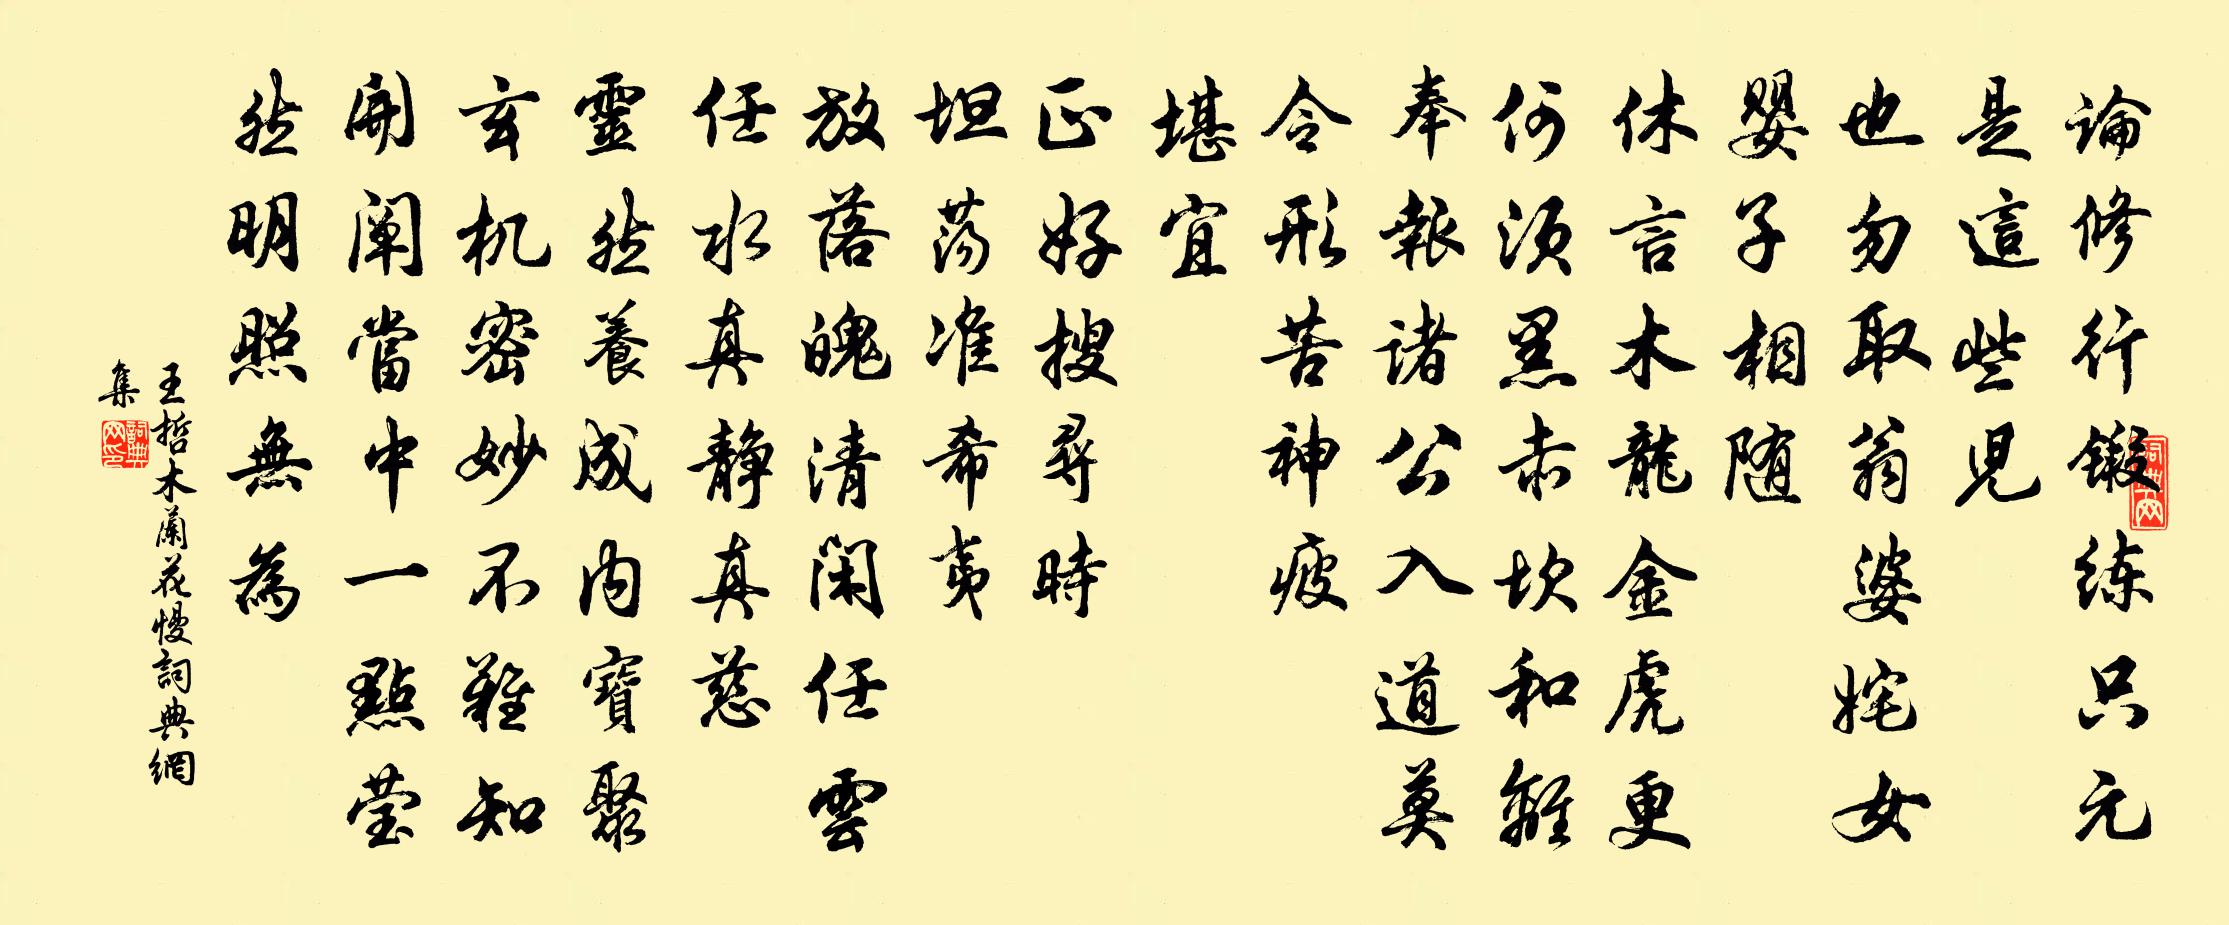 論修行鍛练只元
是這些兒
也勿取翁婆姹女
嬰子相随
休言木龍金虎更
何須黑赤坎和離
奉報諸公入道莫
令形苦神疲
堪宜
正好搜尋時
坦荡准希夷
放落魄清閑任雲
任水真靜真慈
靈然養成内寶聚
玄机密妙不難知
開阐當中一點莹
然明照無為
王哲木蘭花慢詞典網
集
詞典網